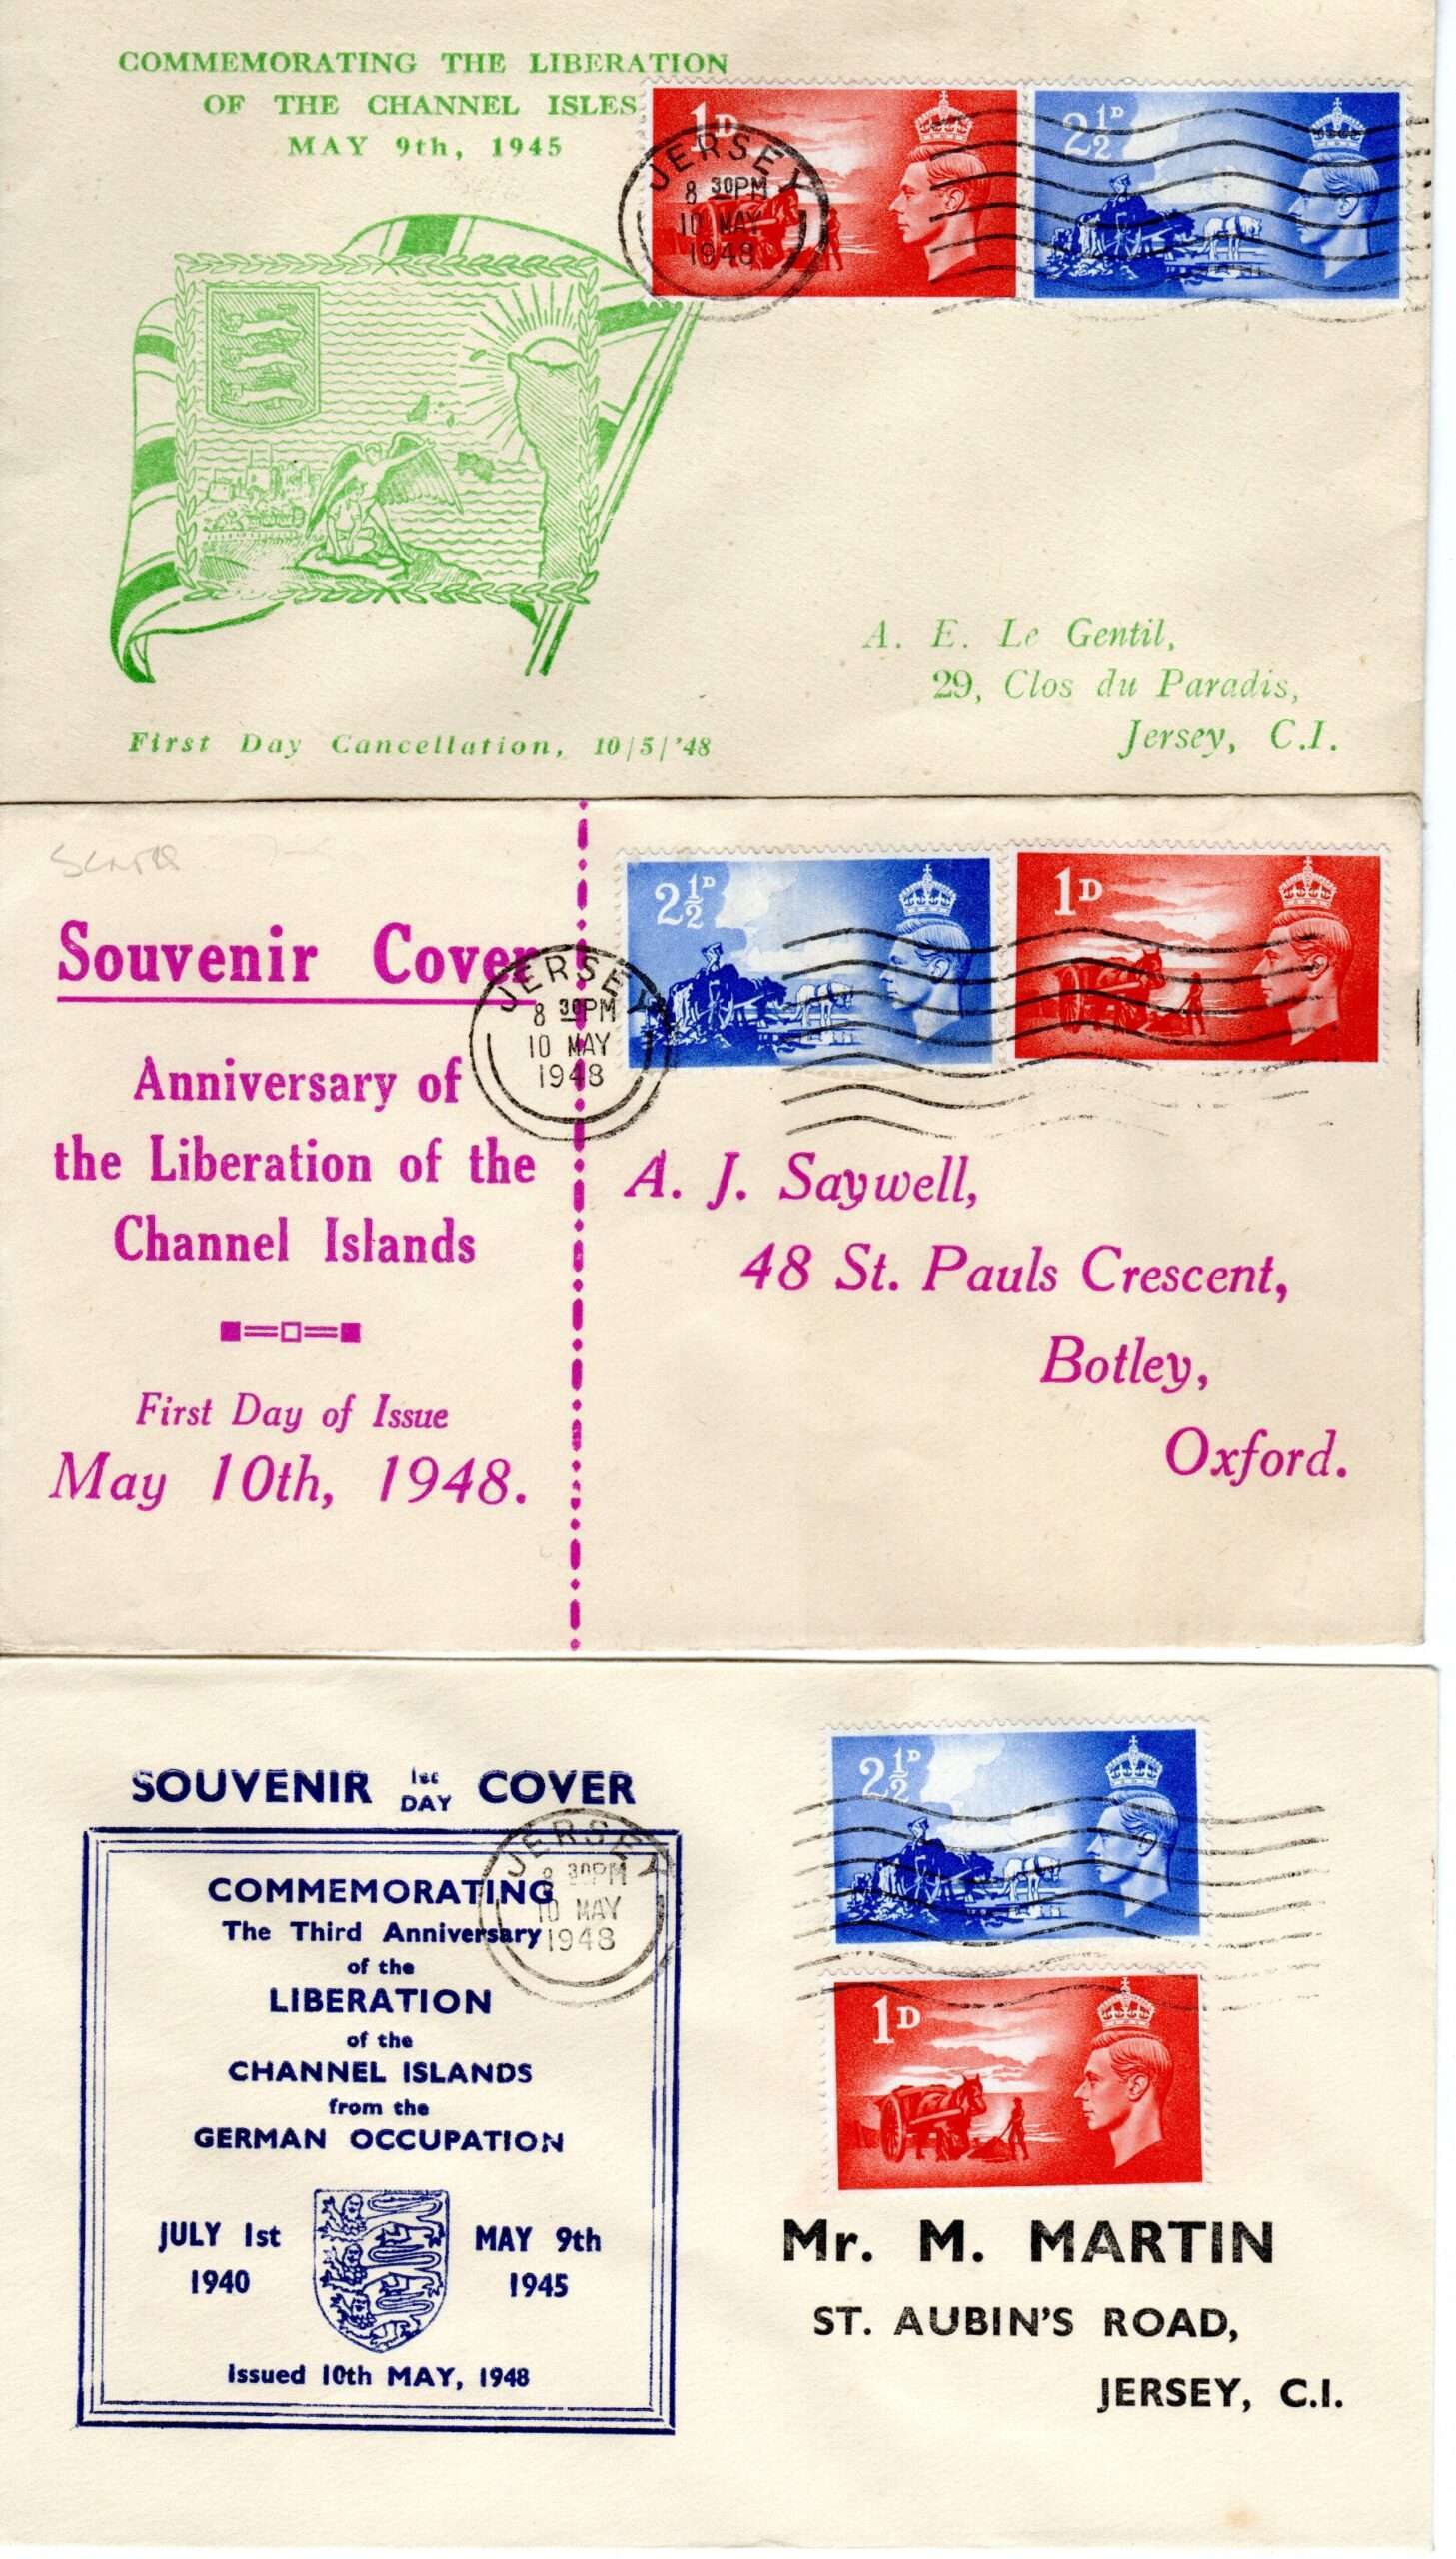 COMMEMORATING THE LIBERATION
OF THE CHANNEL ISLES
MAY 9th, 1945
1D
2½D
JERSEY
8 30PM
10 MAY
1948
A. E. Le Gentil,
29, Clos du Paradis,
Jersey, C.I.
First Day Cancellation, 10/5/'48
Souvenir Cover
Anniversary of
the Liberation of the
Channel Islands
First Day of Issue
May 10th, 1948.
2½D
1D
JERSEY
8 30PM
10 MAY
1948
A. J. Saywell,
48 St. Pauls Crescent,
Botley,
Oxford.
SOUVENIR 1st DAY COVER
COMMEMORATING
The Third Anniversary
of the
LIBERATION
of the
CHANNEL ISLANDS
from the
GERMAN OCCUPATION
JULY 1st
1940
MAY 9th
1945
Issued 10th MAY, 1948
JERSEY
8 30PM
10 MAY
1948
2½D
1D
Mr. M. MARTIN
ST. AUBIN'S ROAD,
JERSEY, C.I.